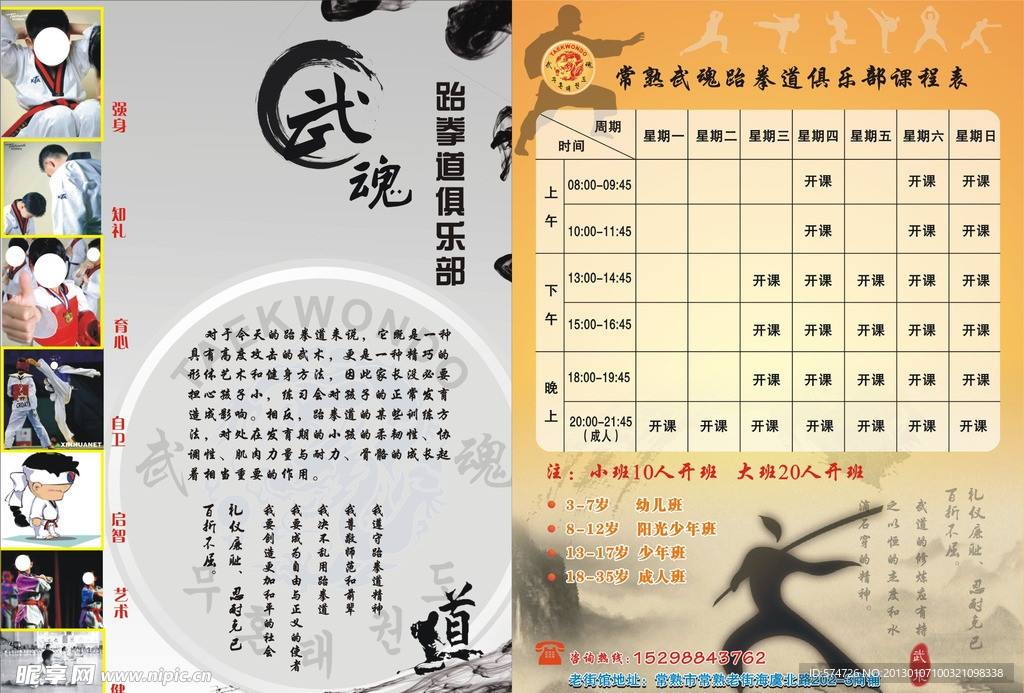 强身
知礼
育心
自卫
启智
艺术
健
武
魂
跆拳道俱乐部
TAEKWONDO
武 魂
对于今天的跆拳道来说，它既是一种
具有高度攻击的武术，更是一种精巧的
形体艺术和健身方法，因此家长没必要
担心孩子小，练习会对孩子的正常发育
造成影响。相反，跆拳道的某些训练方
法，对处在发育期的小孩的柔韧性、协
调性、肌肉力量与耐力、骨骼的成长起
着相当重要的作用。
我遵守跆拳道精神
我尊敬师范和前辈
我决不乱用跆拳道
我要成为自由与正义的使者
我要创造更加和平的社会
礼仪廉耻、忍耐克己
百折不屈。
무 혼 태 권 도
道
昵享网 www.nipic.cn
XINHUANET
TAEKWONDO
武 魂
常熟武魂跆拳道俱乐部课程表
周期
时间
星期一 星期二 星期三 星期四 星期五 星期六 星期日
上午
08:00-09:45 开课 开课 开课
10:00-11:45 开课 开课 开课
下午
13:00-14:45 开课 开课 开课 开课 开课
15:00-16:45 开课 开课 开课 开课 开课
晚上
18:00-19:45 开课 开课 开课 开课 开课
20:00-21:45
（成人）
开课 开课 开课 开课 开课 开课 开课
注：小班10人开班 大班20人开班
3-7岁 幼儿班
8-12岁 阳光少年班
13-17岁 少年班
18-35岁 成人班
礼仪廉耻、忍耐克己
百折不屈。
武道的修炼应有持
之以恒的态度和水
滴石穿的精神。
武
咨询热线:15298843762
老街馆地址：常熟市常熟老街海虞北路202-3商铺
ID:574726 NO:20130107100321098338